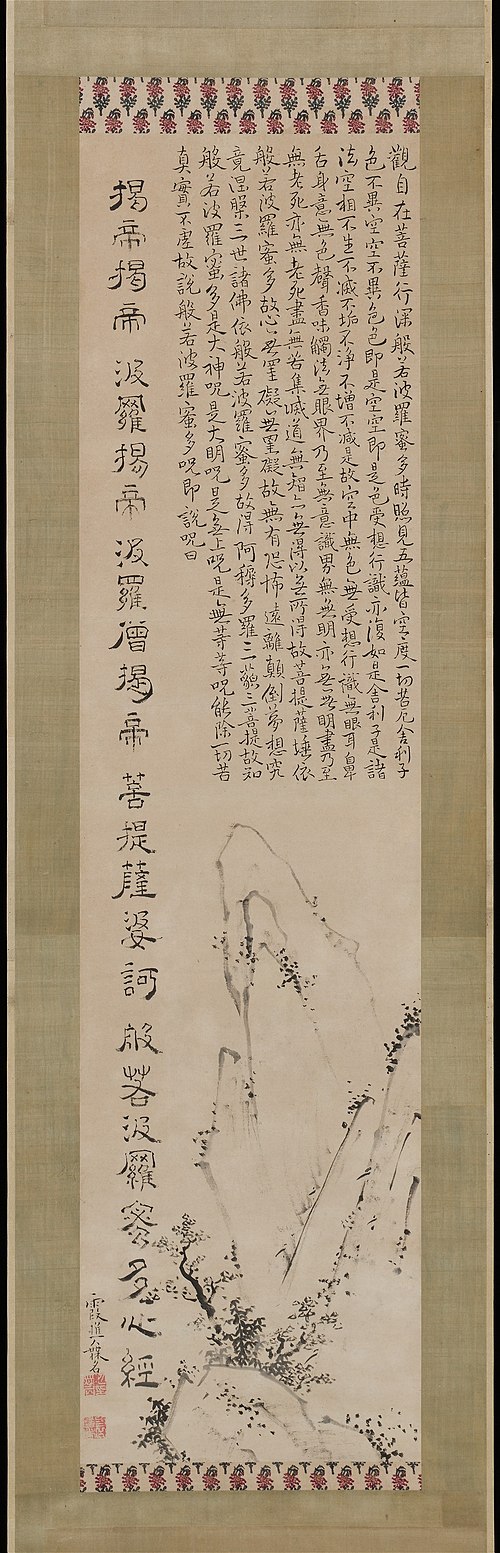 觀自在菩薩行深般若波羅蜜多時照見五蘊皆空度一切苦厄舍利子
色不異空空不異色色即是空空即是色受想行識亦復如是舍利子是諸
法空相不生不滅不垢不淨不增不減是故空中無色無受想行識無眼耳鼻
舌身意無色聲香味觸法無眼界乃至無意識界無無明亦無無明盡乃至
無老死亦無老死盡無苦集滅道無智亦無得以無所得故菩提薩埵依
般若波羅蜜多故心無罣礙無罣礙故無有恐怖遠離顛倒夢想究
竟涅槃三世諸佛依般若波羅蜜多故得阿耨多羅三藐三菩提故知
般若波羅蜜多是大神呪是大明呪是無上呪是無等等呪能除一切苦
真實不虛故說般若波羅蜜多呪即說呪曰
揭帝揭帝 波羅揭帝 波羅僧揭帝 菩提薩婆訶 般若波羅蜜多心經
霞樵